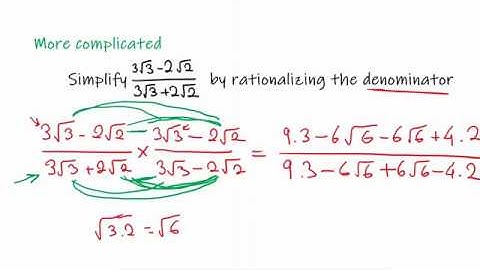 More complicated
Simplify (3√3-2√2)/(3√3+2√2) by rationalizing the denominator
(3√3-2√2)/(3√3+2√2) × (3√3-2√2)/(3√3-2√2) = (9.3-6√6-6√6+4.2)/(9.3-6√6+6√6-4.2)
√3.2 = √6